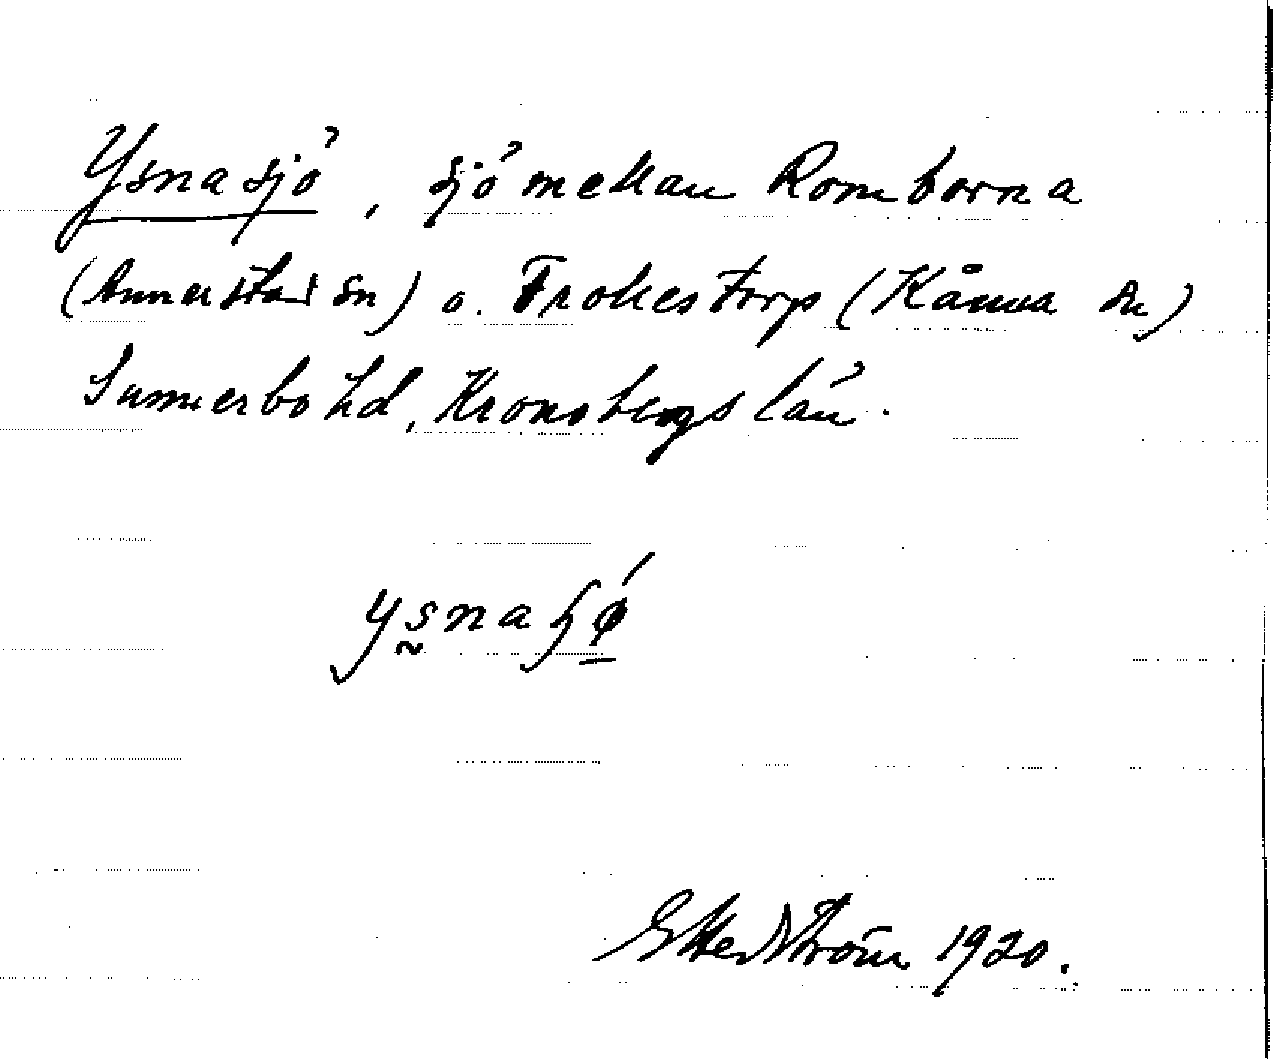 Ysnasjö, sjö mellan Romborna
(Annerstad sn) o. Trollestorp (Kånna sn)
Sunnerbo hd, Kronobergs län.
ysnaɧǿ̲
G Hedström 1920.